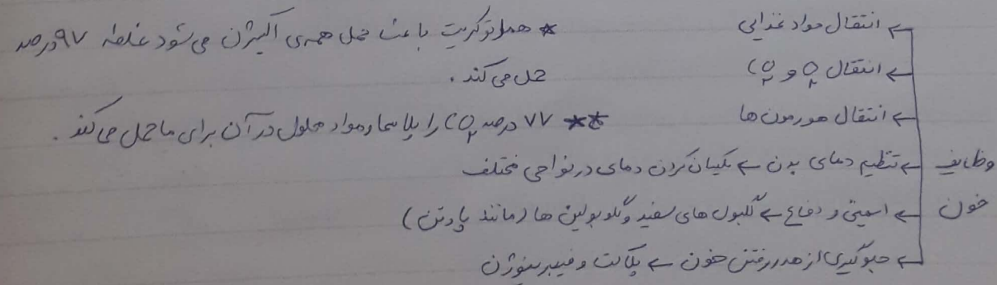 وظایف خون
← انتقال مواد غذایی
← انتقال O₂ و CO₂
← انتقال هورمون ها
← تنظیم دمای بدن ← یکسان کردن دمای در نواحی مختلف
← ایمنی و دفاع ← گلبول های سفید و گلوبولین ها (مانند پادتن)
← جلوگیری از هدر رفتن خون ← پلاکت و فیبرینوژن
* هماتوکریت باعث حمل همه ی اکسیژن می شود غلطه ۹۷ درصد
حمل می کند.
** ۷۷ درصد CO₂ را پلاسما و مواد محلول در آن برای ما حمل می کند.